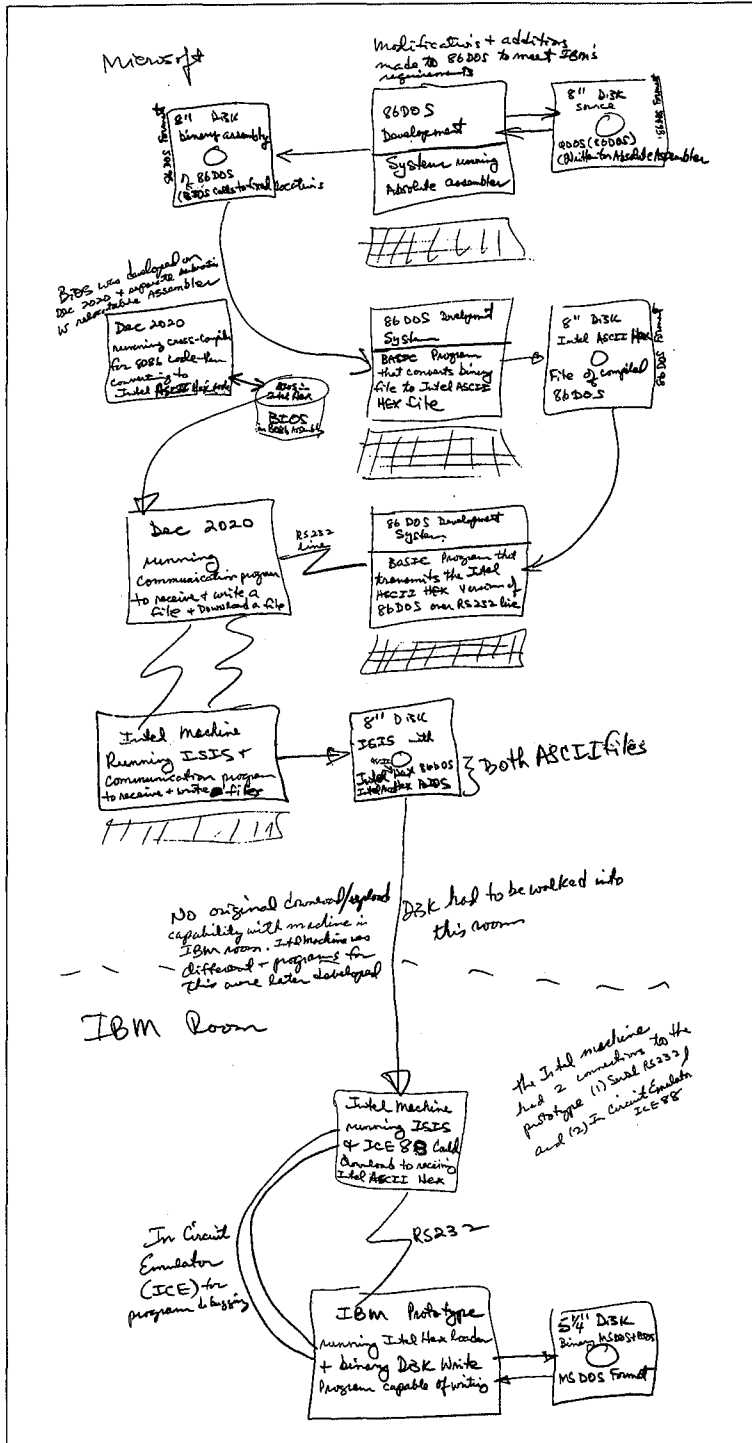 Microsoft
Modifications + additions
made to 86DOS to meet IBM's
requirements
8" Disk
binary assembly
of 86DOS
(BIOS calls to fixed locations
86DOS Format
86DOS
Development
System running
Absolute assembler
8" Disk
source
QDOS (86DOS)
(Written for Absolute Assembler
86DOS Format
BIOS was developed on
Dec 2020 + separate
w relocatable Assembler
Dec 2020
running cross-compiler
for 8086 code then
converting to
Intel ASCII Hex code
BIOS in
Intel Hex
BIOS
in 8086 Assembly
86DOS Development
System
BASIC Program
that converts binary
file to Intel ASCII
HEX file
8" Disk
Intel ASCII Hex
File of compiled
86DOS
86DOS Format
Dec 2020
running
communication program
to receive + write a
file + Download a file
RS232
line
86DOS Development
System
BASIC Program that
transmits the Intel
ASCII HEX Version of
86DOS over RS232 line
Intel Machine
Running ISIS +
communication program
to receive + write files
8" Disk
ISIS with
ASCII
Intel Hex 86DOS
Intel Hex BIOS
Both ASCII files
No original download/upload
capability with machine in
IBM room. Intel Machine was
different + programs for
this were later developed
Disk had to be walked into
this room
IBM Room
the Intel machine
had 2 connections to the
prototype (1) Serial RS232
and (2) In Circuit Emulator
ICE 88
Intel Machine
running ISIS
+ ICE 88 Could
download to receiving
Intel ASCII Hex
In Circuit
Emulator
(ICE) for
program debugging
RS232
IBM Prototype
running Intel Hex loader
+ binary Disk Write
Program capable of writing
5 1/4" Disk
Binary MSDOS+BIOS
MSDOS Format